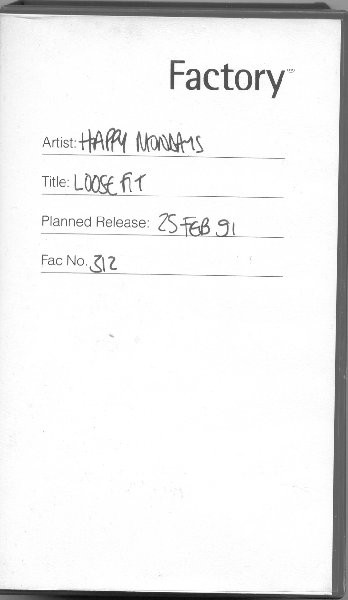 Factory™
Artist: HAPPY MONDAYS
Title: LOOSE FIT
Planned Release: 25 FEB 91
Fac No. 312